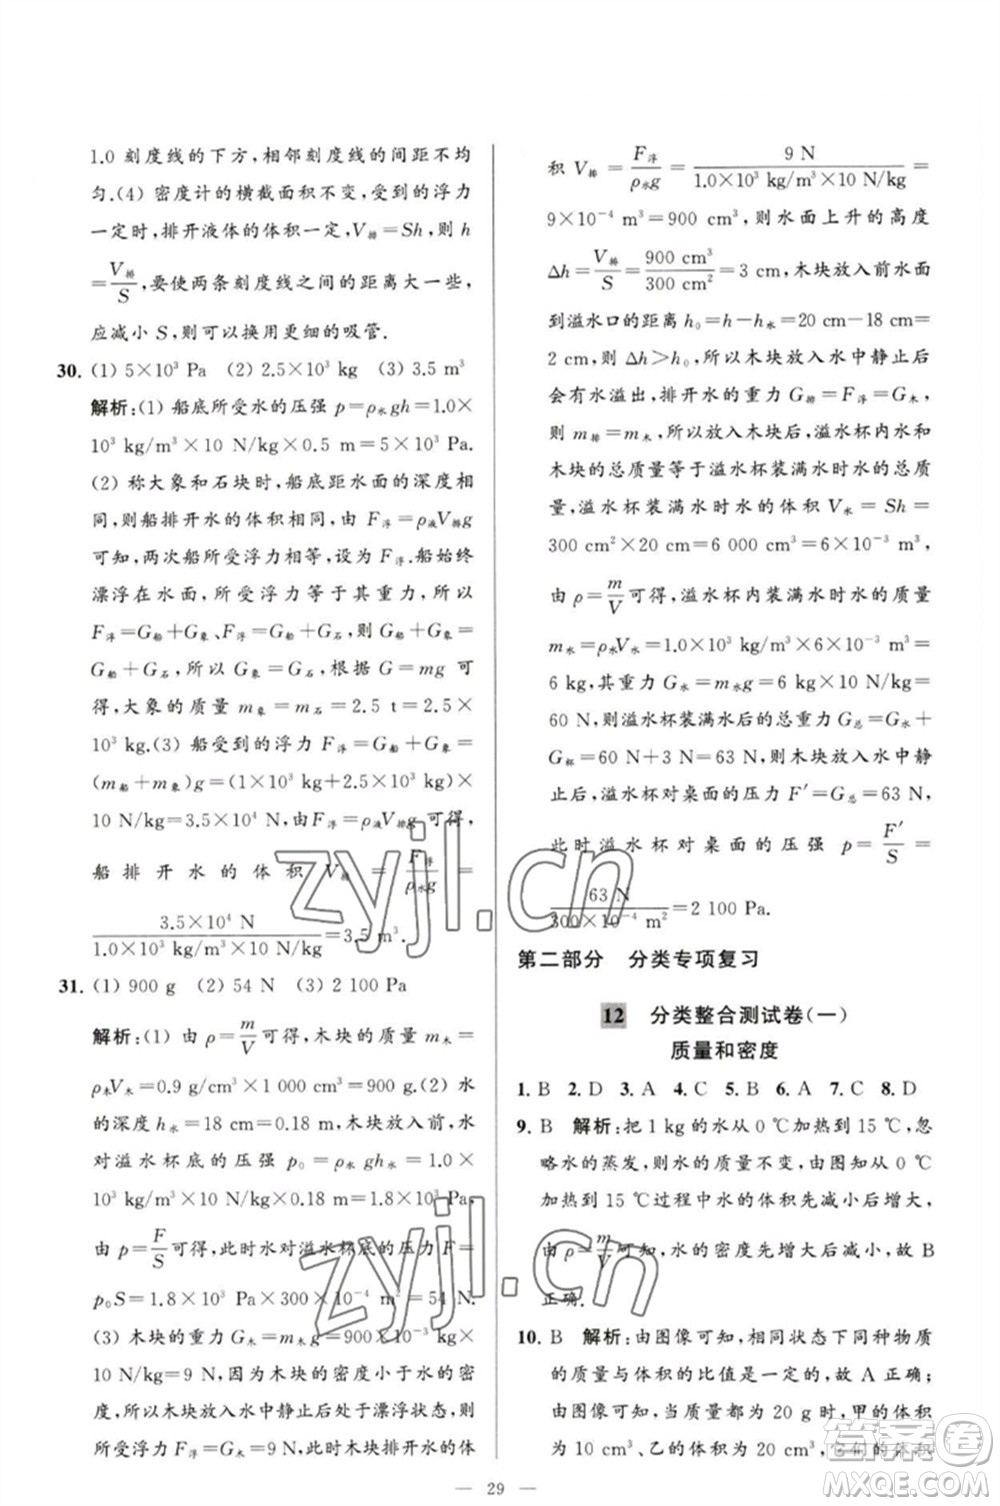 1.0 刻度线的下方，相邻刻度线的间距不均
匀.(4) 密度计的横截面积不变，受到的浮力
一定时，排开液体的体积一定，V排=Sh，则 h
=V排/S，要使两条刻度线之间的距离大一些，
应减小 S，则可以换用更细的吸管.
30. (1) 5×10³ Pa (2) 2.5×10³ kg (3) 3.5 m³
解析：(1) 船底所受水的压强 p=ρ水gh=1.0×
10³ kg/m³×10 N/kg×0.5 m=5×10³ Pa.
(2) 称大象和石块时，船底距水面的深度相
同，则船排开水的体积相同，由 F浮=ρ液V排g
可知，两次船所受浮力相等，设为 F浮.船始终
漂浮在水面，所受浮力等于其重力，所以
F浮=G船+G象、F浮=G船+G石，则 G船+G象=
G船+G石，所以 G象=G石，根据 G=mg 可
得，大象的质量 m象=m石=2.5 t=2.5×
10³ kg.(3) 船受到的浮力 F浮=G船+G象=
(m船+m象)g=(1×10³ kg+2.5×10³ kg)×
10 N/kg=3.5×10⁴ N，由F浮=ρ液V排g 可得，
船排开水的体积 V排=F浮/ρ水g=
3.5×10⁴ N/1.0×10³ kg/m³×10 N/kg=3.5 m³.
31. (1) 900 g (2) 54 N (3) 2 100 Pa
解析：(1) 由 ρ=m/V可得，木块的质量 m木=
ρ木V木=0.9 g/cm³×1 000 cm³=900 g.(2) 水
的深度 h水=18 cm=0.18 m，木块放入前，水
对溢水杯底的压强 p₀=ρ水gh水=1.0×
10³ kg/m³×10 N/kg×0.18 m=1.8×10³ Pa，
由 p=F/S可得，此时水对溢水杯底的压力 F=
p₀S=1.8×10³ Pa×300×10⁻⁴ m²=54 N.
(3) 木块的重力 G木=m木g=900×10⁻³ kg×
10 N/kg=9 N，因为木块的密度小于水的密
度，所以木块放入水中静止后处于漂浮状态，则
所受浮力 F浮=G木=9 N，木块排开水的体
积 V排=F浮/ρ水g=9 N/1.0×10³ kg/m³×10 N/kg=
9×10⁻⁴ m³=900 cm³，则水面上升的高度
Δh=V排/S=900 cm³/300 cm²=3 cm，木块放入前水面
到溢水口的距离 h₀=h-h水=20 cm-18 cm=
2 cm，则 Δh>h₀，所以木块放入水中静止后
有水溢出，排开水的重力 G排=F浮=G木，
则 m排=m木，所以放入木块后，溢水杯内水和
木块的总质量等于溢水杯装满水时水的总质
量，溢水杯装满水时水的体积 V水=Sh=
300 cm²×20 cm=6 000 cm³=6×10⁻³ m³，
由 ρ=m/V可得，溢水杯内装满水时水的质量
m水=ρ水V水=1.0×10³ kg/m³×6×10⁻³ m³=
6 kg，其重力 G水=m水g=6 kg×10 N/kg=
60 N，溢水杯装满水后的总重力 G总=G水+
G杯=60 N+3 N=63 N，则木块放入水中静
止后，溢水杯对桌面的压力 F′=G总=63 N，
此时溢水杯对桌面的压强 p=F′/S=
63 N/300×10⁻⁴ m²=2 100 Pa.
第二部分 分类专项复习
12 分类整合测试卷(一)
质量和密度
1. B 2. D 3. A 4. C 5. B 6. A 7. C 8. D
9. B 解析：把 1 kg 的水从 0 ℃加热到 15 ℃，忽
略水的蒸发，则水的质量不变，由图知从 0 ℃
加热到 15 ℃过程中水的体积先减小后增大，
由 ρ=m/V可知，水的密度先增大后减小，故 B
正确.
10. B 解析：由图像可知，相同状态下同种物质
的质量与体积的比值是一定的，故 A 正确；
由图像可知，当质量都为 20 g 时，甲的体积
为 10 cm³、乙的体积为 20 cm³，它们的体积
— 29 —
zyjl.cn
zyjl.cn
答案圈
MXQE.COM